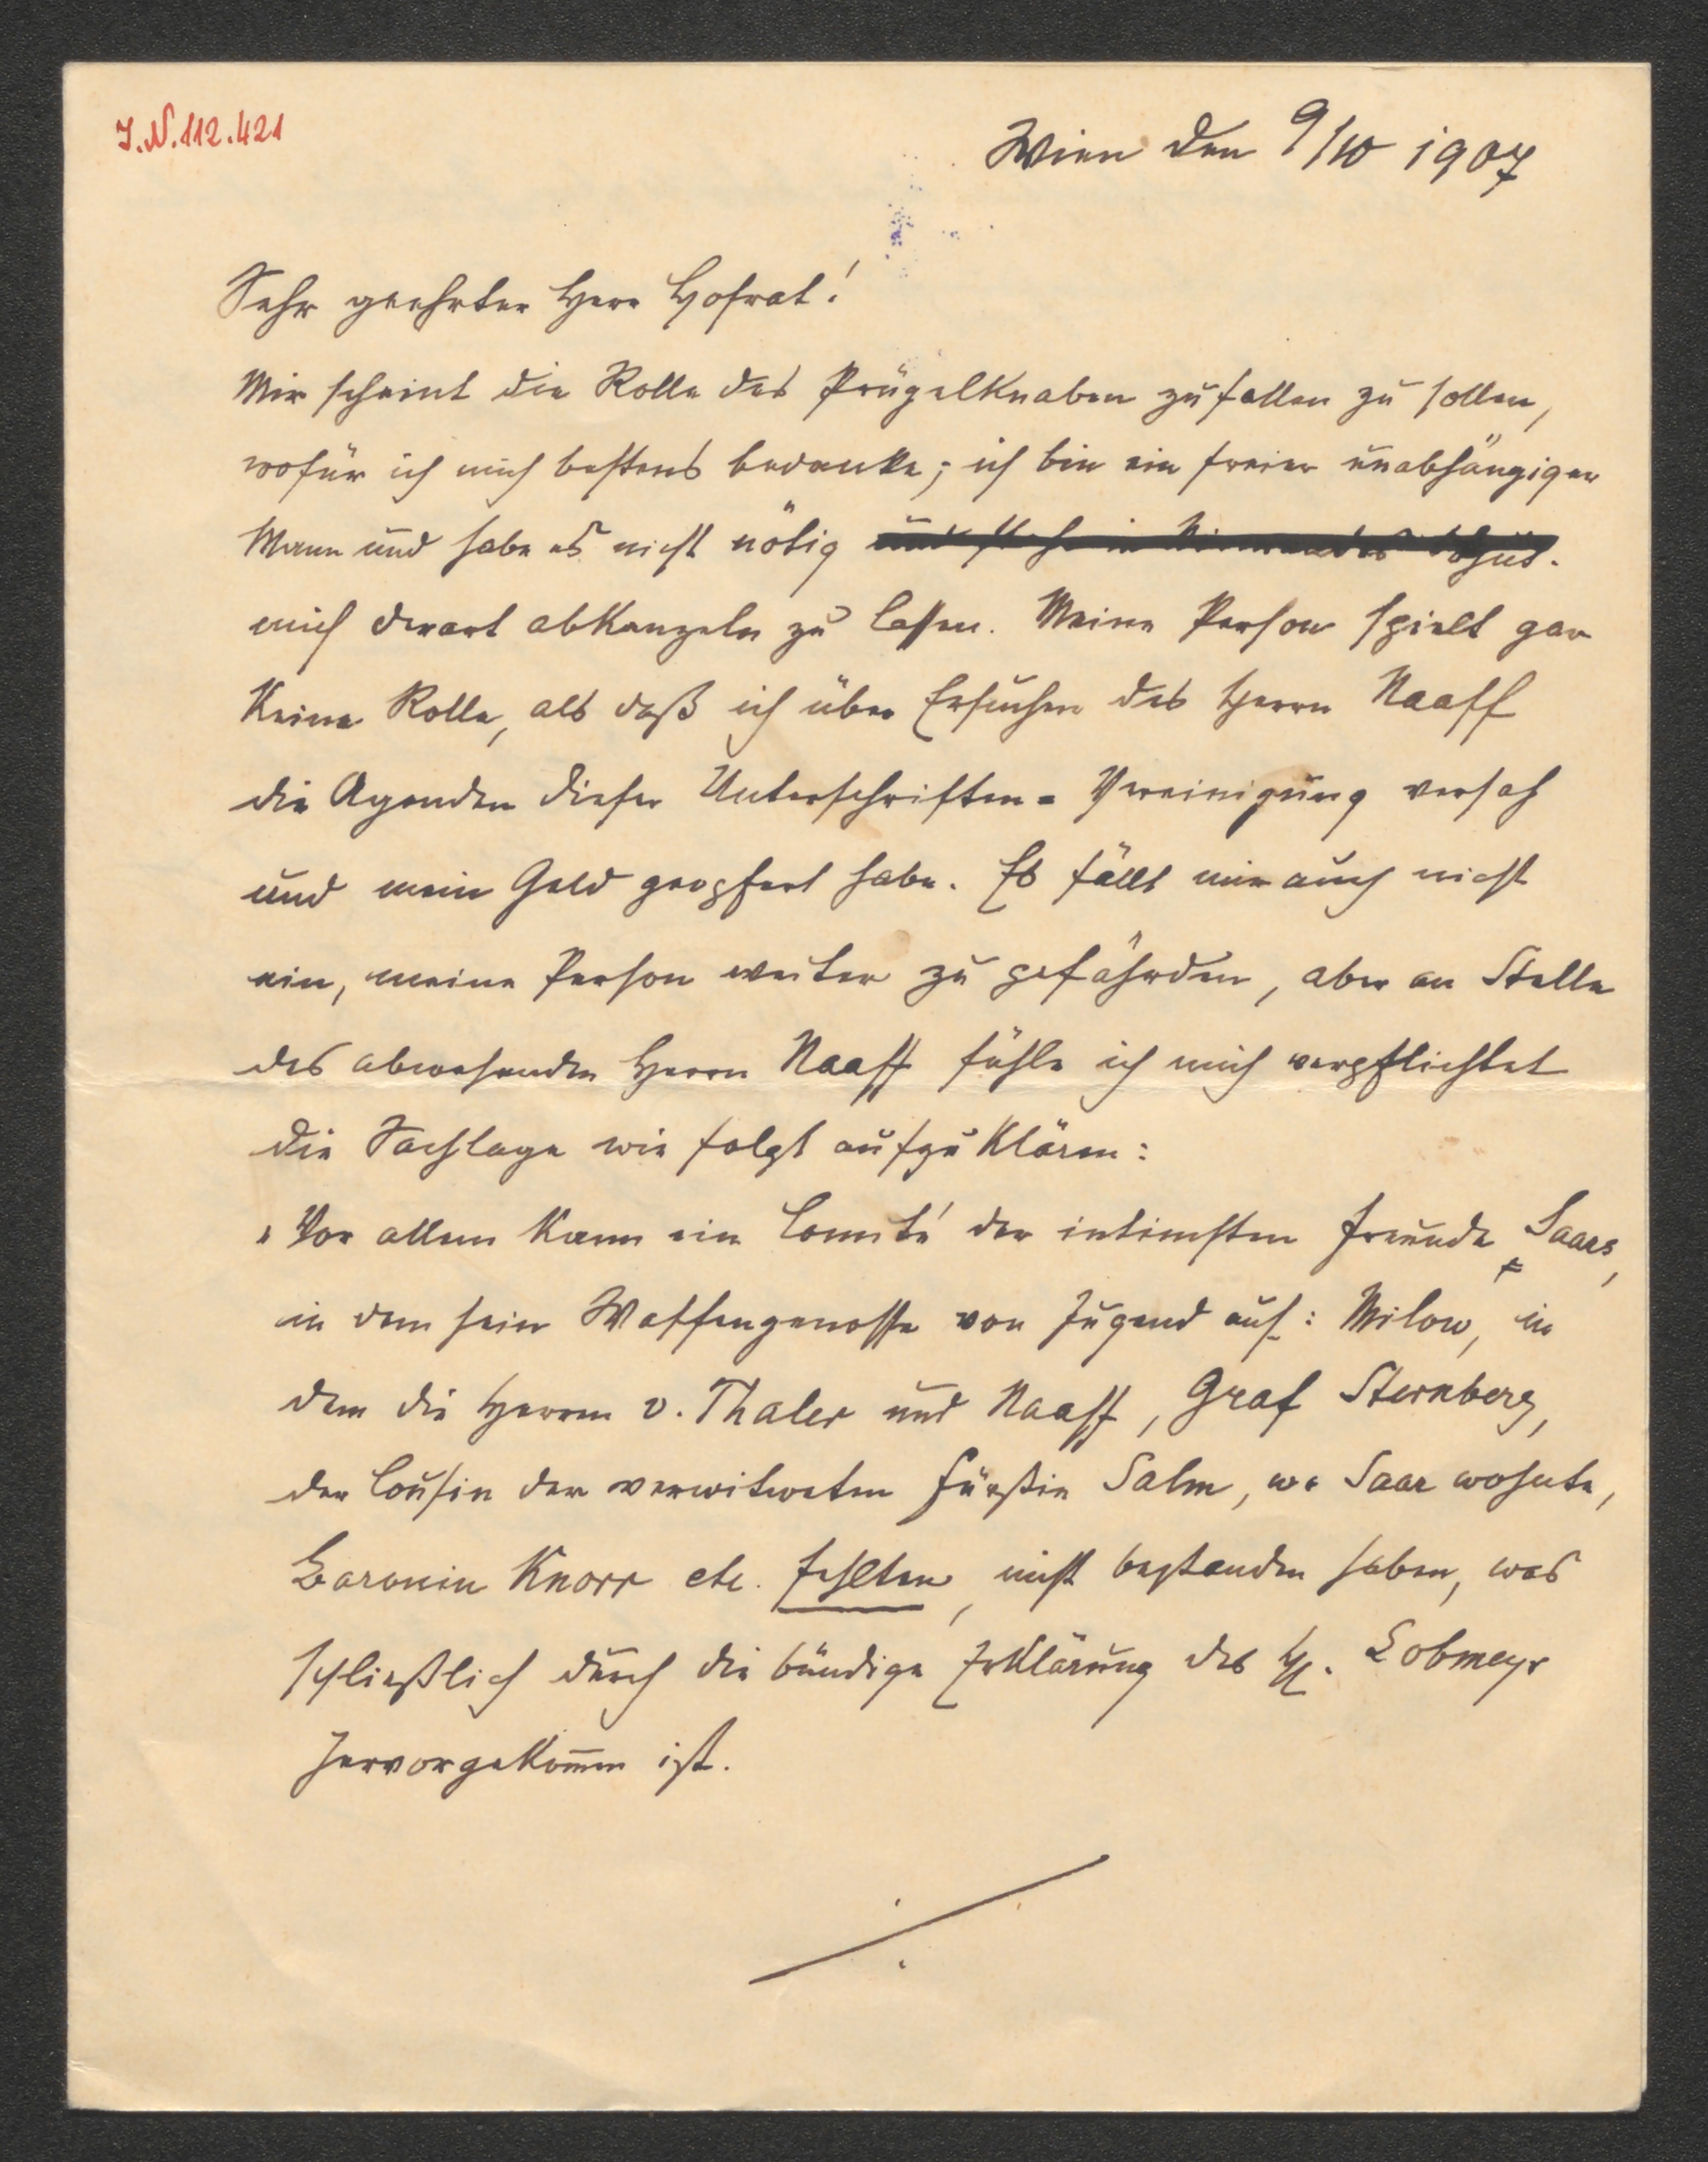 J.N.112.421
Wien den 9/10 1907
Sehr geehrter Herr Hofrat!
Mir scheint die Rolle des Prügelknaben zufallen zu sollen,
wofür ich mich bestens bedanke; ich bin ein freier unabhängiger
Mann und habe es nicht nötig
mich derart abkanzeln zu lassen. Meine Person spielt gar
keine Rolle, als daß ich über Ersuchen des Herrn Naaff
die Agenden dieser Unterschriften-Vereinigung versah
und mein Geld geopfert habe. Es fällt mir auch nicht
ein, meine Person weiter zu gefährden, aber an Stelle
des abwesenden Herrn Naaff fühle ich mich verpflichtet
die Sachlage wie folgt aufzuklären:
Vor allem kann ein Comité der intimsten Freunde Saars,
in dem sein Waffengenosse von Jugend auf: Milow, in
dem die Herren v. Thaler und Naaff, Graf Sternberg,
der Cousin der verwitweten Fürstin Salm, wo Saar wohnte,
Baronin Knorr etc. fehlten, nicht bestanden haben, was
schließlich durch die bündige Erklärung des H. Lobmeyr
hervorgekom̅en ist.